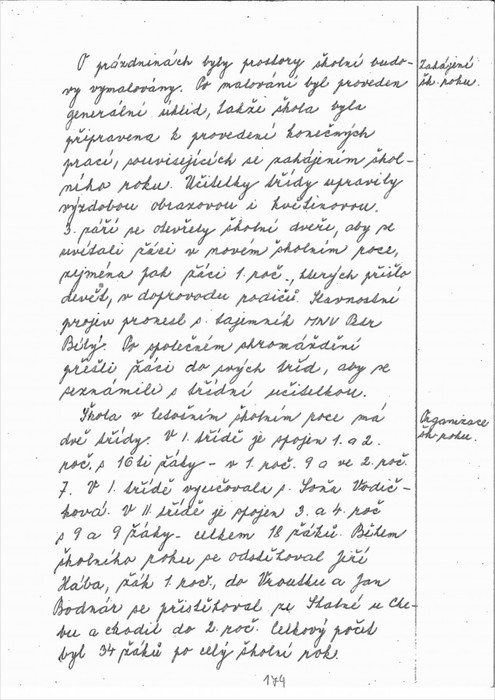 O prázdninách byly prostory školní budo-
vy vymalovány. Po malování byl proveden
generální uklid, takže škola byla
připravena k provedení konečných
prací, souvisejících se zahájením škol-
ního roku. Učitelky třídy upravily
výzdobou obrazovou i květinovou.
3. září se otevřely školní dveře, aby se
uvítali žáci v novém školním roce,
zejména pak žáci 1. roč., kterých přišlo
devět, v doprovodu rodičů. Slavnostní
projev pronesl s. tajemník MNV Petr
Bílý. Po společném shromáždění
přešli žáci do svých tříd, aby se
seznámili s třídní učitelkou.
Škola v letošním školním roce má
dvě třídy. V I. třídě je spojen 1. a 2.
roč. s 16ti žáky - v 1. roč. 9 a ve 2. roč.
7. V I. třídě vyučovala s. Soňa Vodič-
ková. V II. třídě je spojen 3. a 4. roč
s 9 a 9 žáky - celkem 18 žáků. Během
školního roku se odstěhoval Jiří
Hába, žák 1. roč., do Vroutku a Jan
Bodnár se přistěhoval ze Skalné u Che-
bu a chodil do 2. roč. Celkový počet
byl 34 žáků po celý školní rok.
Zahájení
šk. roku.
Organizace
šk. roku.
174